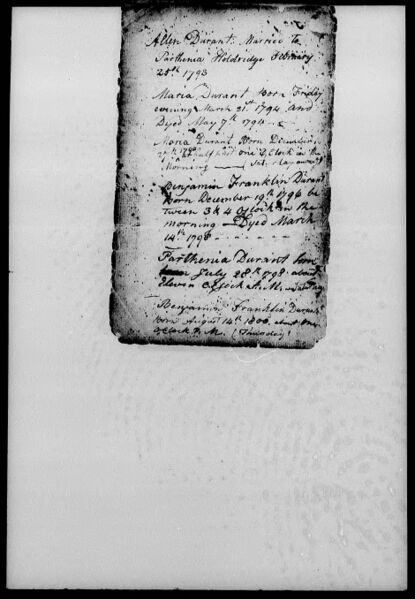 Allen Durant Married to
Parthenia Holdridge February
25th 1793
Maria Durant Born Friday
evening March 21st 1794 and
Dyed May 7th 1794
Maria Durant Born December
at half past one O Clock in the
Morning
Benjamin Franklin Durant
Born December 19th 1796 be
tween 3 & 4 O Clock in the
morning Dyed March
14th 1798
Parthenia Durant born
July 28th 1798 about
Eleven O Clock A. M.
Benjamin Franklin Durant
born August 14th 1800 about
O Clock P. M. (Thursday)